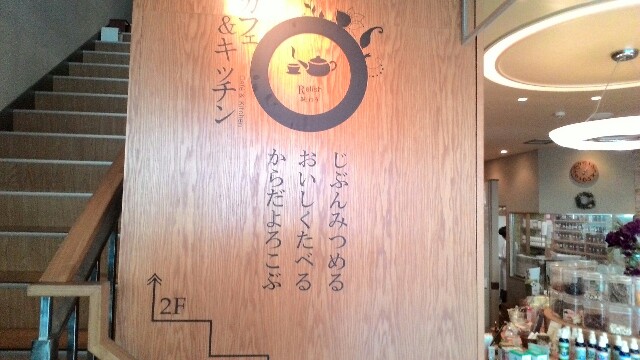 カフェ
&キッチン
Café & Kitchen
Relier
じぶんみつめる
おいしくたべる
からだよろこぶ
2F